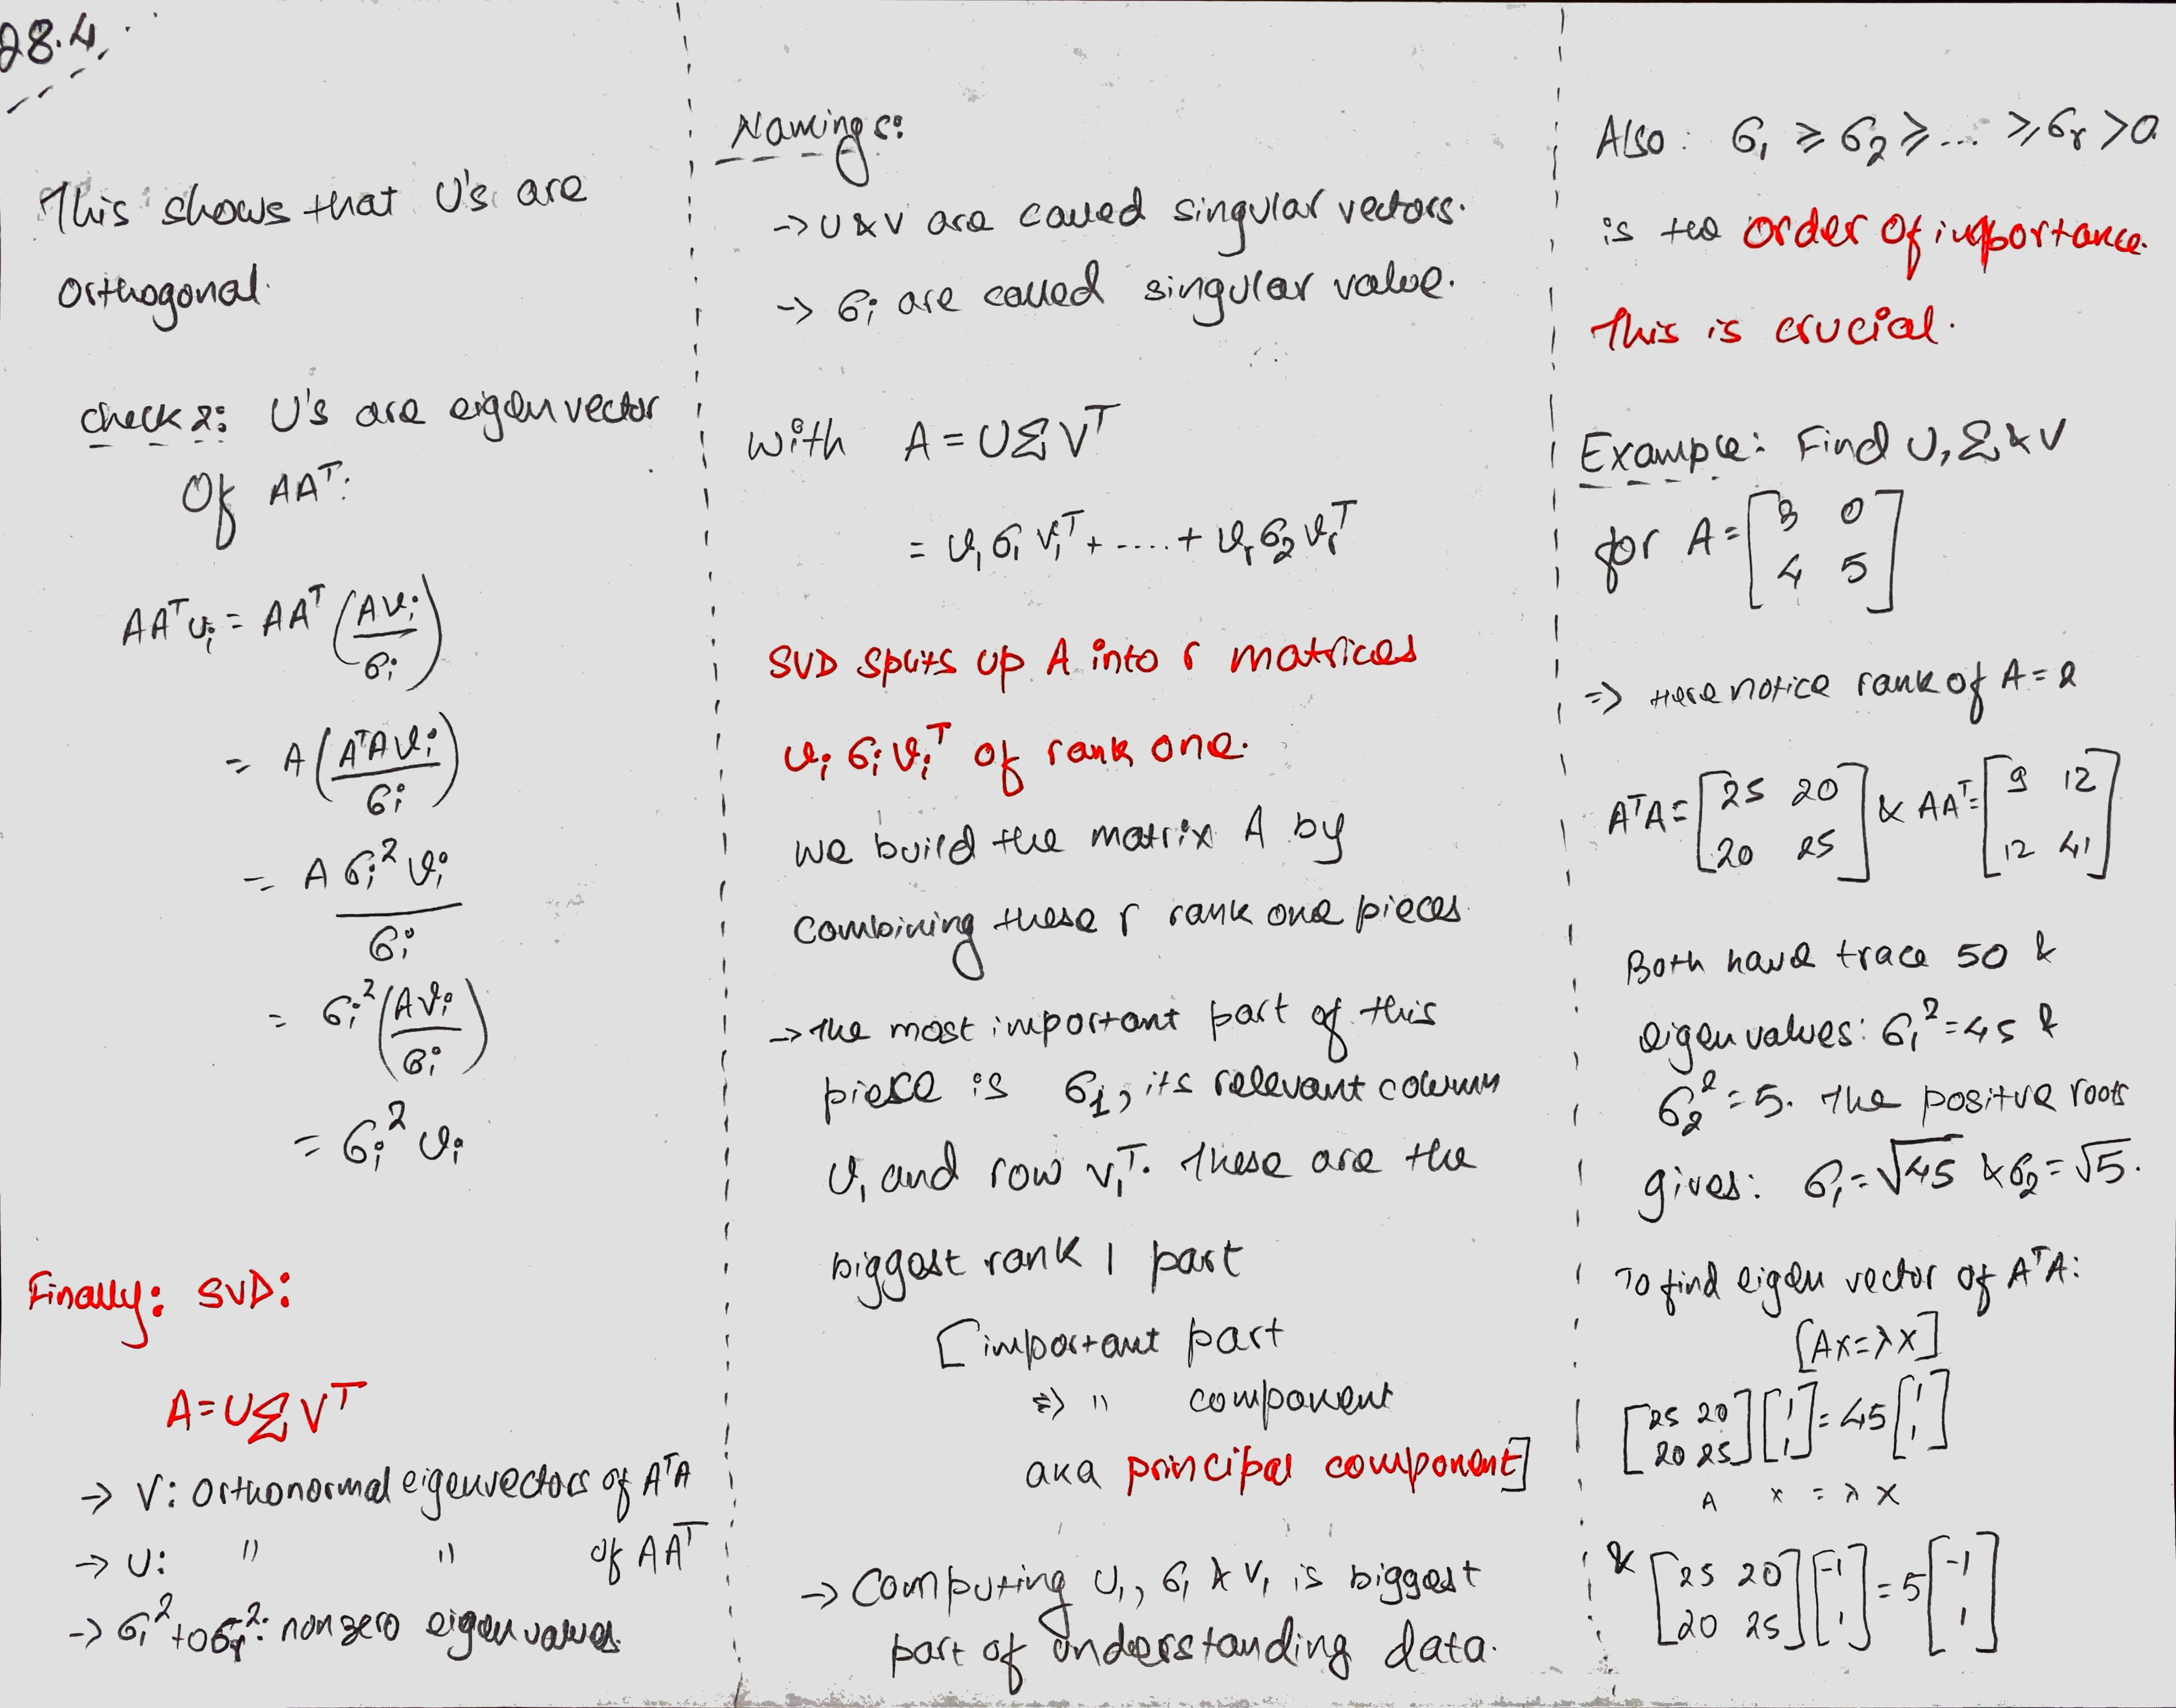 28.4.
This shows that U's are
orthogonal.
check 2: U's are eigen vector
Of AAᵀ:
AAᵀuᵢ = AAᵀ (Avᵢ/σᵢ)
= A(AᵀAvᵢ/σᵢ)
= Aσᵢ²vᵢ/σᵢ
= σᵢ²(Avᵢ/σᵢ)
= σᵢ² uᵢ
Finally: SVD:
A=UΣVᵀ
→ V: Orthonormal eigenvectors of AᵀA
→ U: " " of AAᵀ
→ σ₁² to σᵣ²: non zero eigen values.
Namings:
→ U & V are called singular vectors.
→ σᵢ are called singular value.
With A = UΣVᵀ
= u₁σ₁v₁ᵀ + ..... + uᵣσ₂vᵣᵀ
SVD splits up A into r matrices
uᵢσᵢvᵢᵀ of rank one.
We build the matrix A by
combining these r rank one pieces
→ The most important part of this
piece is σ₁, its relevant column
u₁ and row v₁ᵀ. These are the
biggest rank 1 part
[important part
⇒ " component
aka principal component]
→ Computing u₁, σ₁ & v₁ is biggest
part of understanding data.
Also: σ₁ ⩾ σ₂ ⩾ ... ⩾ σᵣ > 0.
is the order of importance.
This is crucial.
Example: Find U, Σ & V
for A = [3 0
4 5]
⇒ Here notice rank of A = 2
AᵀA = [25 20 & AAᵀ = [9 12
20 25] 12 41]
Both have trace 50 &
eigen values: σ₁² = 45 &
σ₂² = 5. The positve roots
gives: σ₁ = √45 & σ₂ = √5.
To find eigen vector of AᵀA:
[Ax = λx]
[25 20 [1 = 45 [1
20 25] 1] 1]
A x = λ x
& [25 20 [-1 = 5 [-1
20 25] 1] 1]